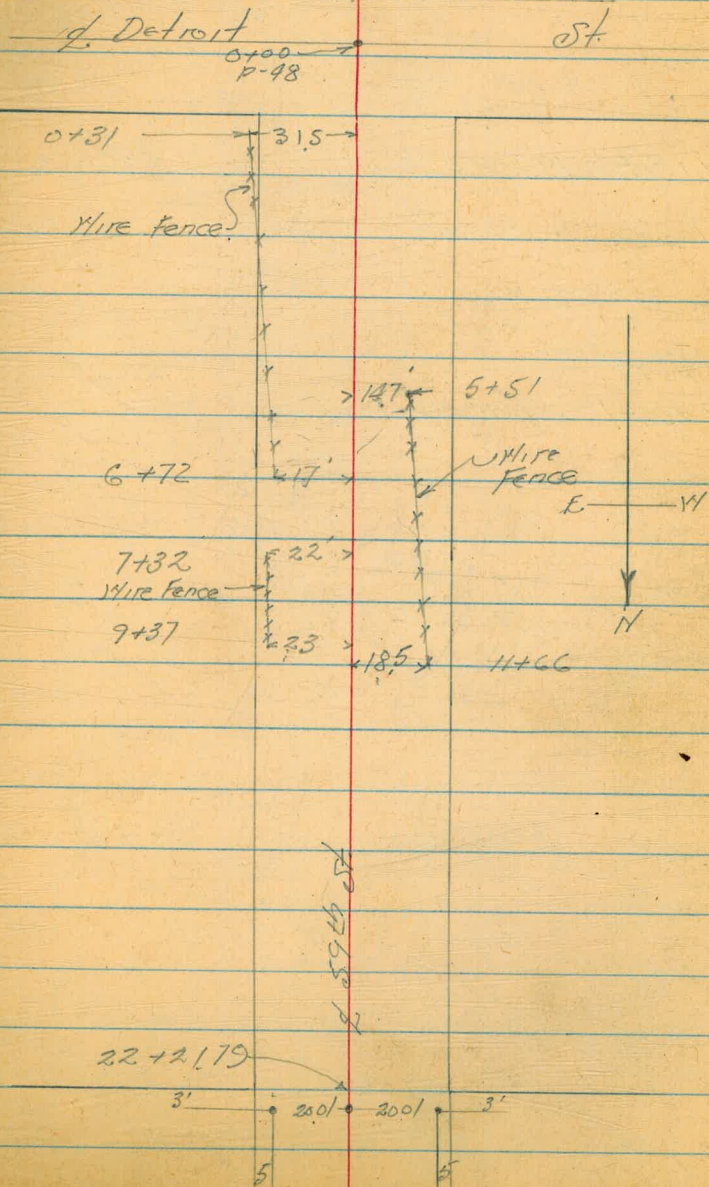 ℄ Detroit St.
0+00
P-48
0+31 31.5
Wire Fence
14.7' 5+51
6+72 17'
Wire
Fence
E W
22'
7+32
Wire Fence
9+37
23'
N
18.5' 11+66
℄ 59th St
22+21.79
3' 20.01 20.01 3'
5 5